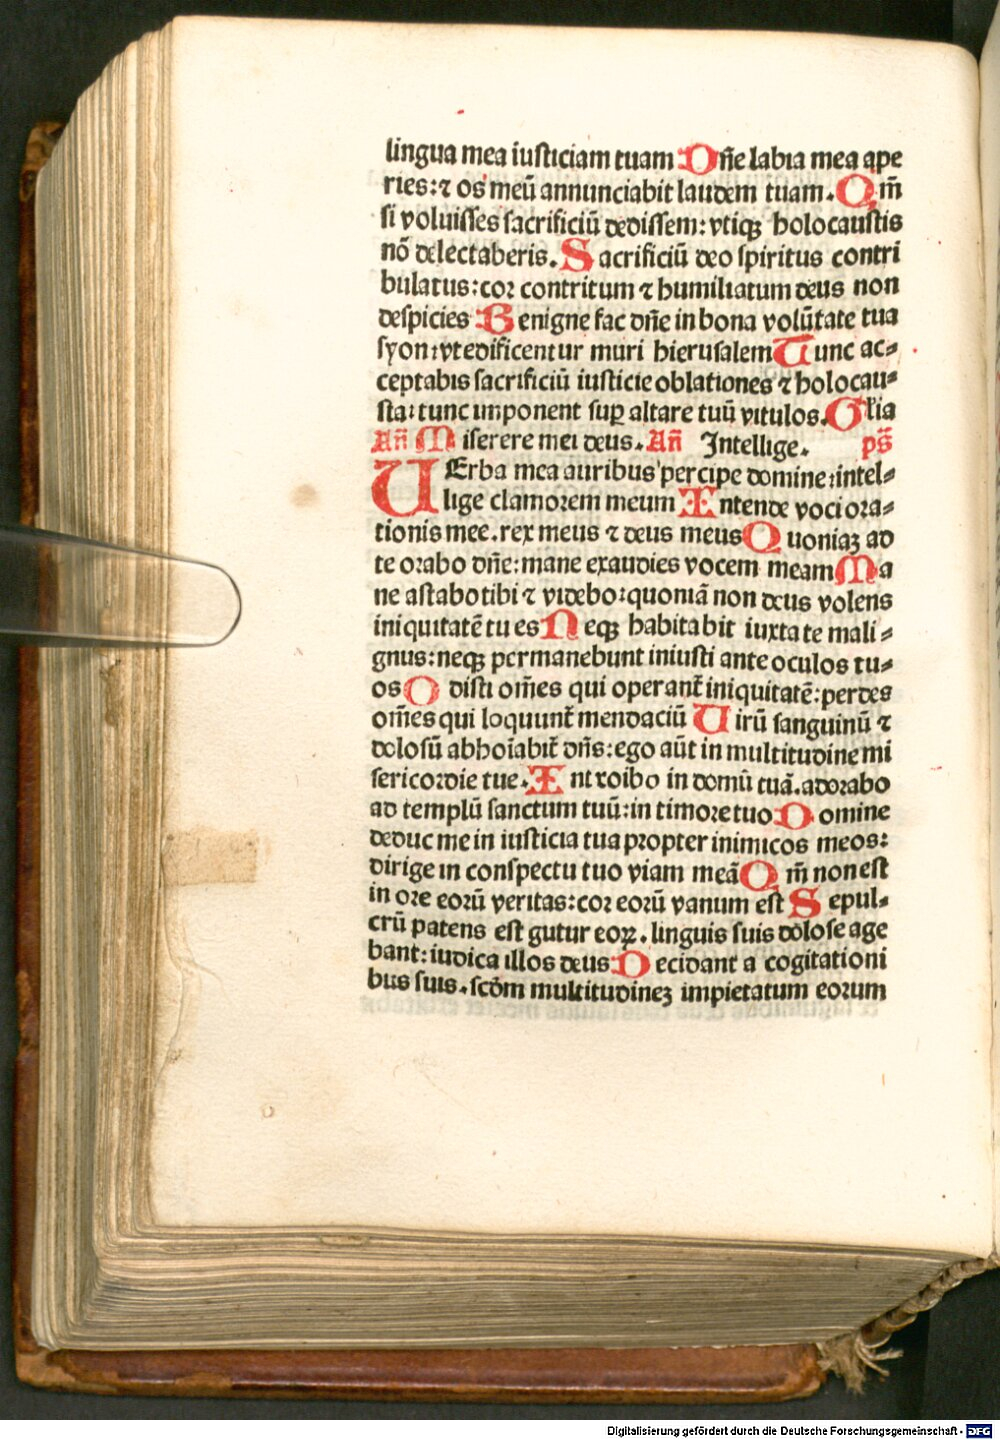 lingua mea iusticiam tuam Dn̄e labia mea ape
ries: ⁊ os meū annunciabit laudem tuam. Qm̄
si voluisses sacrificiū dedissem: vtiqꝫ holocaustis
nō delectaberis. Sacrificiū deo spiritus contri
bulatus: cor contritum ⁊ humiliatum deus non
despicies Benigne fac dn̄e in bona volūtate tua
syon: vt edificentur muri hierusalem Tunc ac⸗
ceptabis sacrificiū iusticie oblationes ⁊ holocau⸗
sta: tunc imponent sup altare tuū vitulos. Gl̄ia
An̄ Miserere mei deus. An̄ Intellige. ps̄
UErba mea auribus percipe domine: intel⸗
lige clamorem meum Intende voci ora⸗
tionis mee. rex meus ⁊ deus meus Quoniaꝫ ad
te orabo dn̄e: mane exaudies vocem meam Ma
ne astabo tibi ⁊ videbo: quoniā non deus volens
iniquitatē tu es Neqꝫ habitabit iuxta te mali⸗
gnus: neqꝫ permanebunt iniusti ante oculos tu⸗
os Odisti om̄es qui operant̄ iniquitatē: perdes
om̄es qui loquunt̄ mendaciū Uirū sanguinū ⁊
dolosū abhoīabit̄ dn̄s: ego aūt in multitudine mi
sericordie tue. Introibo in domū tuā. adorabo
ad templū sanctum tuū: in timore tuo Domine
deduc me in iusticia tua propter inimicos meos:
dirige in conspectu tuo viam meā Qm̄ non est
in ore eorū veritas: cor eorū vanum est Sepul⸗
crū patens est guttur eoꝝ. linguis suis dolose age
bant: iudica illos deus Decidant a cogitationi
bus suis. scd̄m multitudineꝫ impietatum eorum
Digitalisierung gefördert durch die Deutsche Forschungsgemeinschaft - DFG